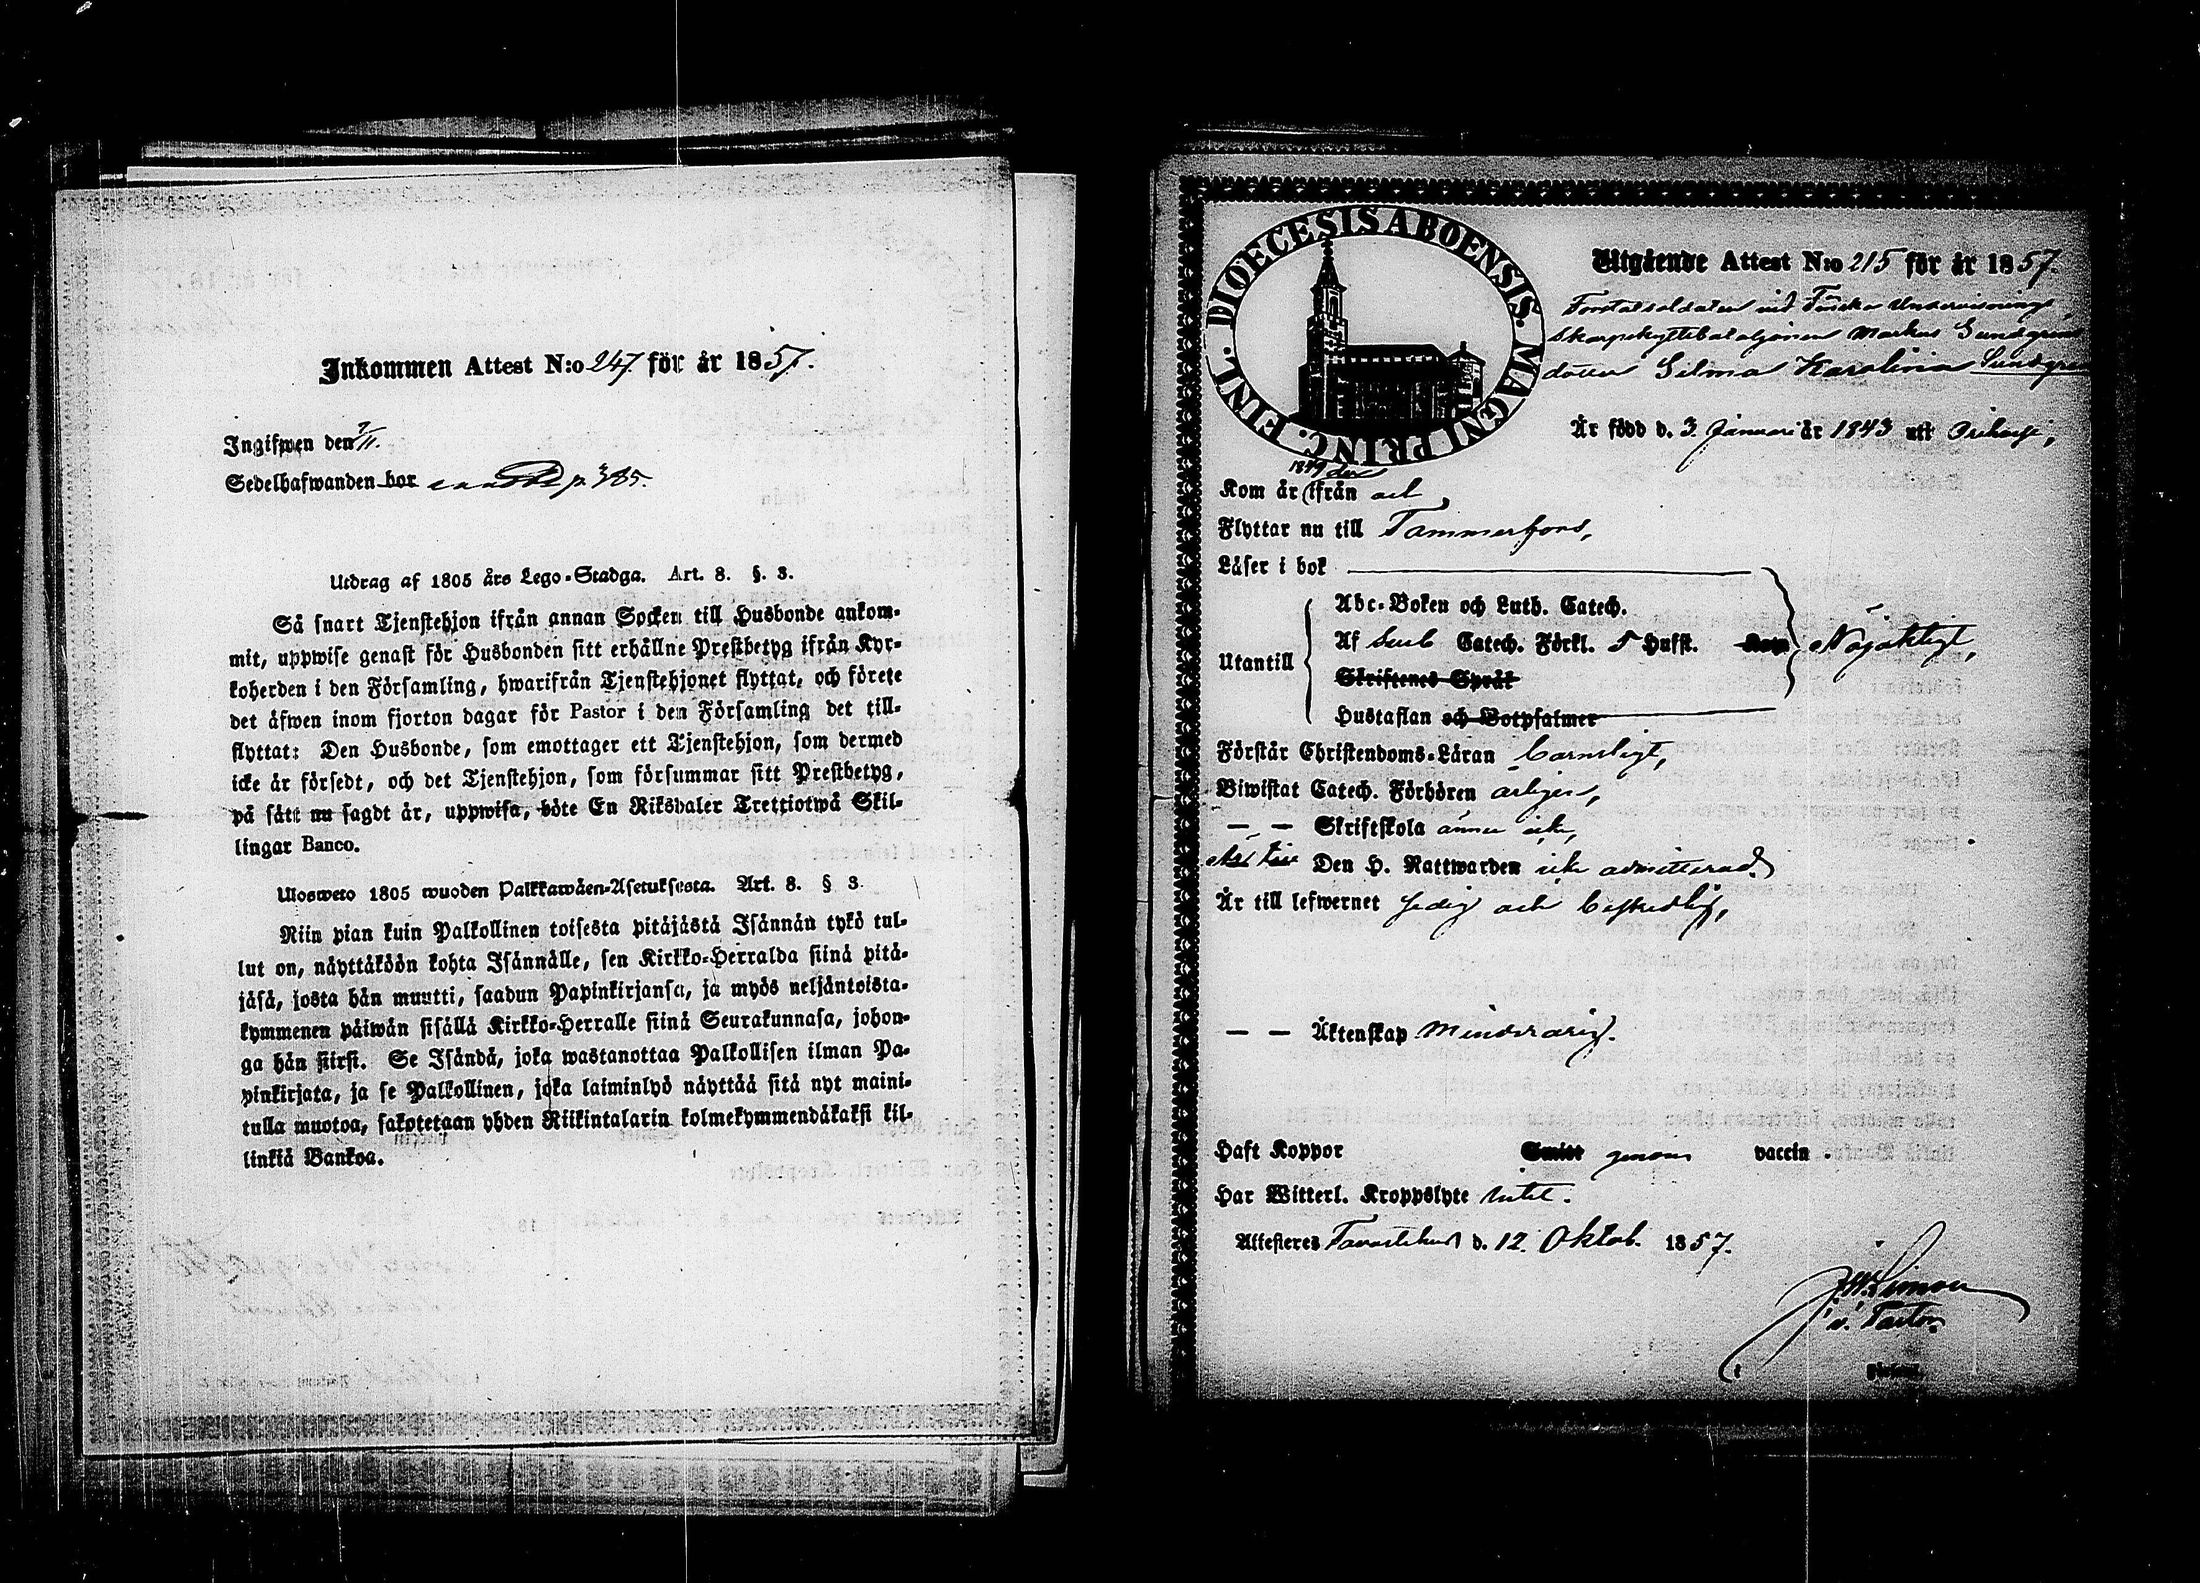 Inkommen Attest N:o 247 för år 1857.
Ingifwen den 7/11.
Sedelhafwanden bor p. 385.
Utdrag af 1805 års Lego-Stadga. Art. 8. §. 3.
Så snart Tjenstehjon ifrån annan Socken till Husbonde ankom-
mit, uppwise genast för Husbonden sitt erhållne Prestbetyg ifrån Kyr-
koherden i den Församling, hwarifrån Tjenstehjonet flyttat, och förete
det äfwen inom fjorton dagar för Pastor i den Församling det till-
flyttat: Den Husbonde, som emottager ett Tjenstehjon, som dermed
icke är försedt, och det Tjenstehjon, som försummar sitt Prestbetyg,
på sätt nu sagdt är, uppwisa, böte En Riksdaler Trettiotwå Skil-
lingar Banco.
Ulosweto 1805 wuoden Palkkawäen-Asetuksesta. Art. 8. § 3.
Niin pian kuin Palkollinen toisesta pitäjästä Isännän tykö tul-
lut on, näyttäköön kohta Isännälle, sen Kirkko-Herralda siinä pitä-
jäsä, josta hän muutti, saadun Papinkirjansa, ja myös neljäntoista-
kymmenen päiwän sisällä Kirkko-Herralle siinä Seurakunnasa, johon-
ga hän siirsi. Se Isändä, joka wastanottaa Palkollisen ilman Pa-
pinkirjata, ja se Palkollinen, joka laiminlyö näyttää sitä nyt maini-
tulla muotoa, sakotetaan yhden Riikintalarin kolmekymmendäkaksi kil-
linkiä Bankoa.
DIOECESIS ABOENSIS. MAGNI PRINC. FINL.
Utgående Attest N:o 215 för år 1857.
Forstatsoldaten vid Finska Undervisnings
Skarpskyttebataljonen Markus Sundgrens
dotter Selma Karolina Sundgren
Är född d. 3. Januari år 1843 uti
1849
Kom år ifrån
Flyttar nu till Tammerfors,
Läser i bok
Utantill
Abc-Boken och Luth. Catech.
Af Catech. Förkl. 5 Hufst. Nöjaktigt,
Skriftenes Språk
Hustaflan och Botpsalmer
Förstår Christendoms-Läran barnsligt,
Biwistat Catech. Förhören årligen,
— — Skriftskola ännu icke,
Den H. Nattwarden icke admitterad.
Är till lefwernet sedig och beskedlig,
— — Äktenskap Minderårig.
Haft Koppor Smitt genom vaccin.
Har Witterl. Kroppslyte intet.
Attesteres Tavastehus d. 12. Oktob. 1857.
v. Pastor.